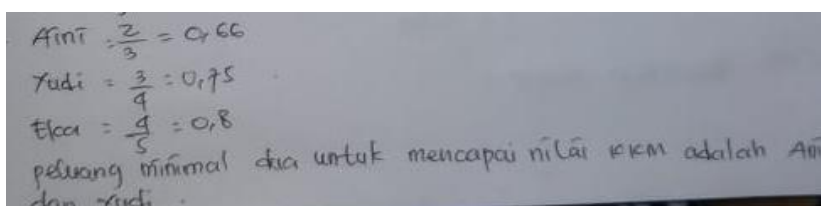 Aini = 2/3 = 0,66
Yudi = 3/4 = 0,75
Eka = 4/5 = 0,8
peluang minimal dua untuk mencapai nilai KKM adalah Aini
dan Yudi.